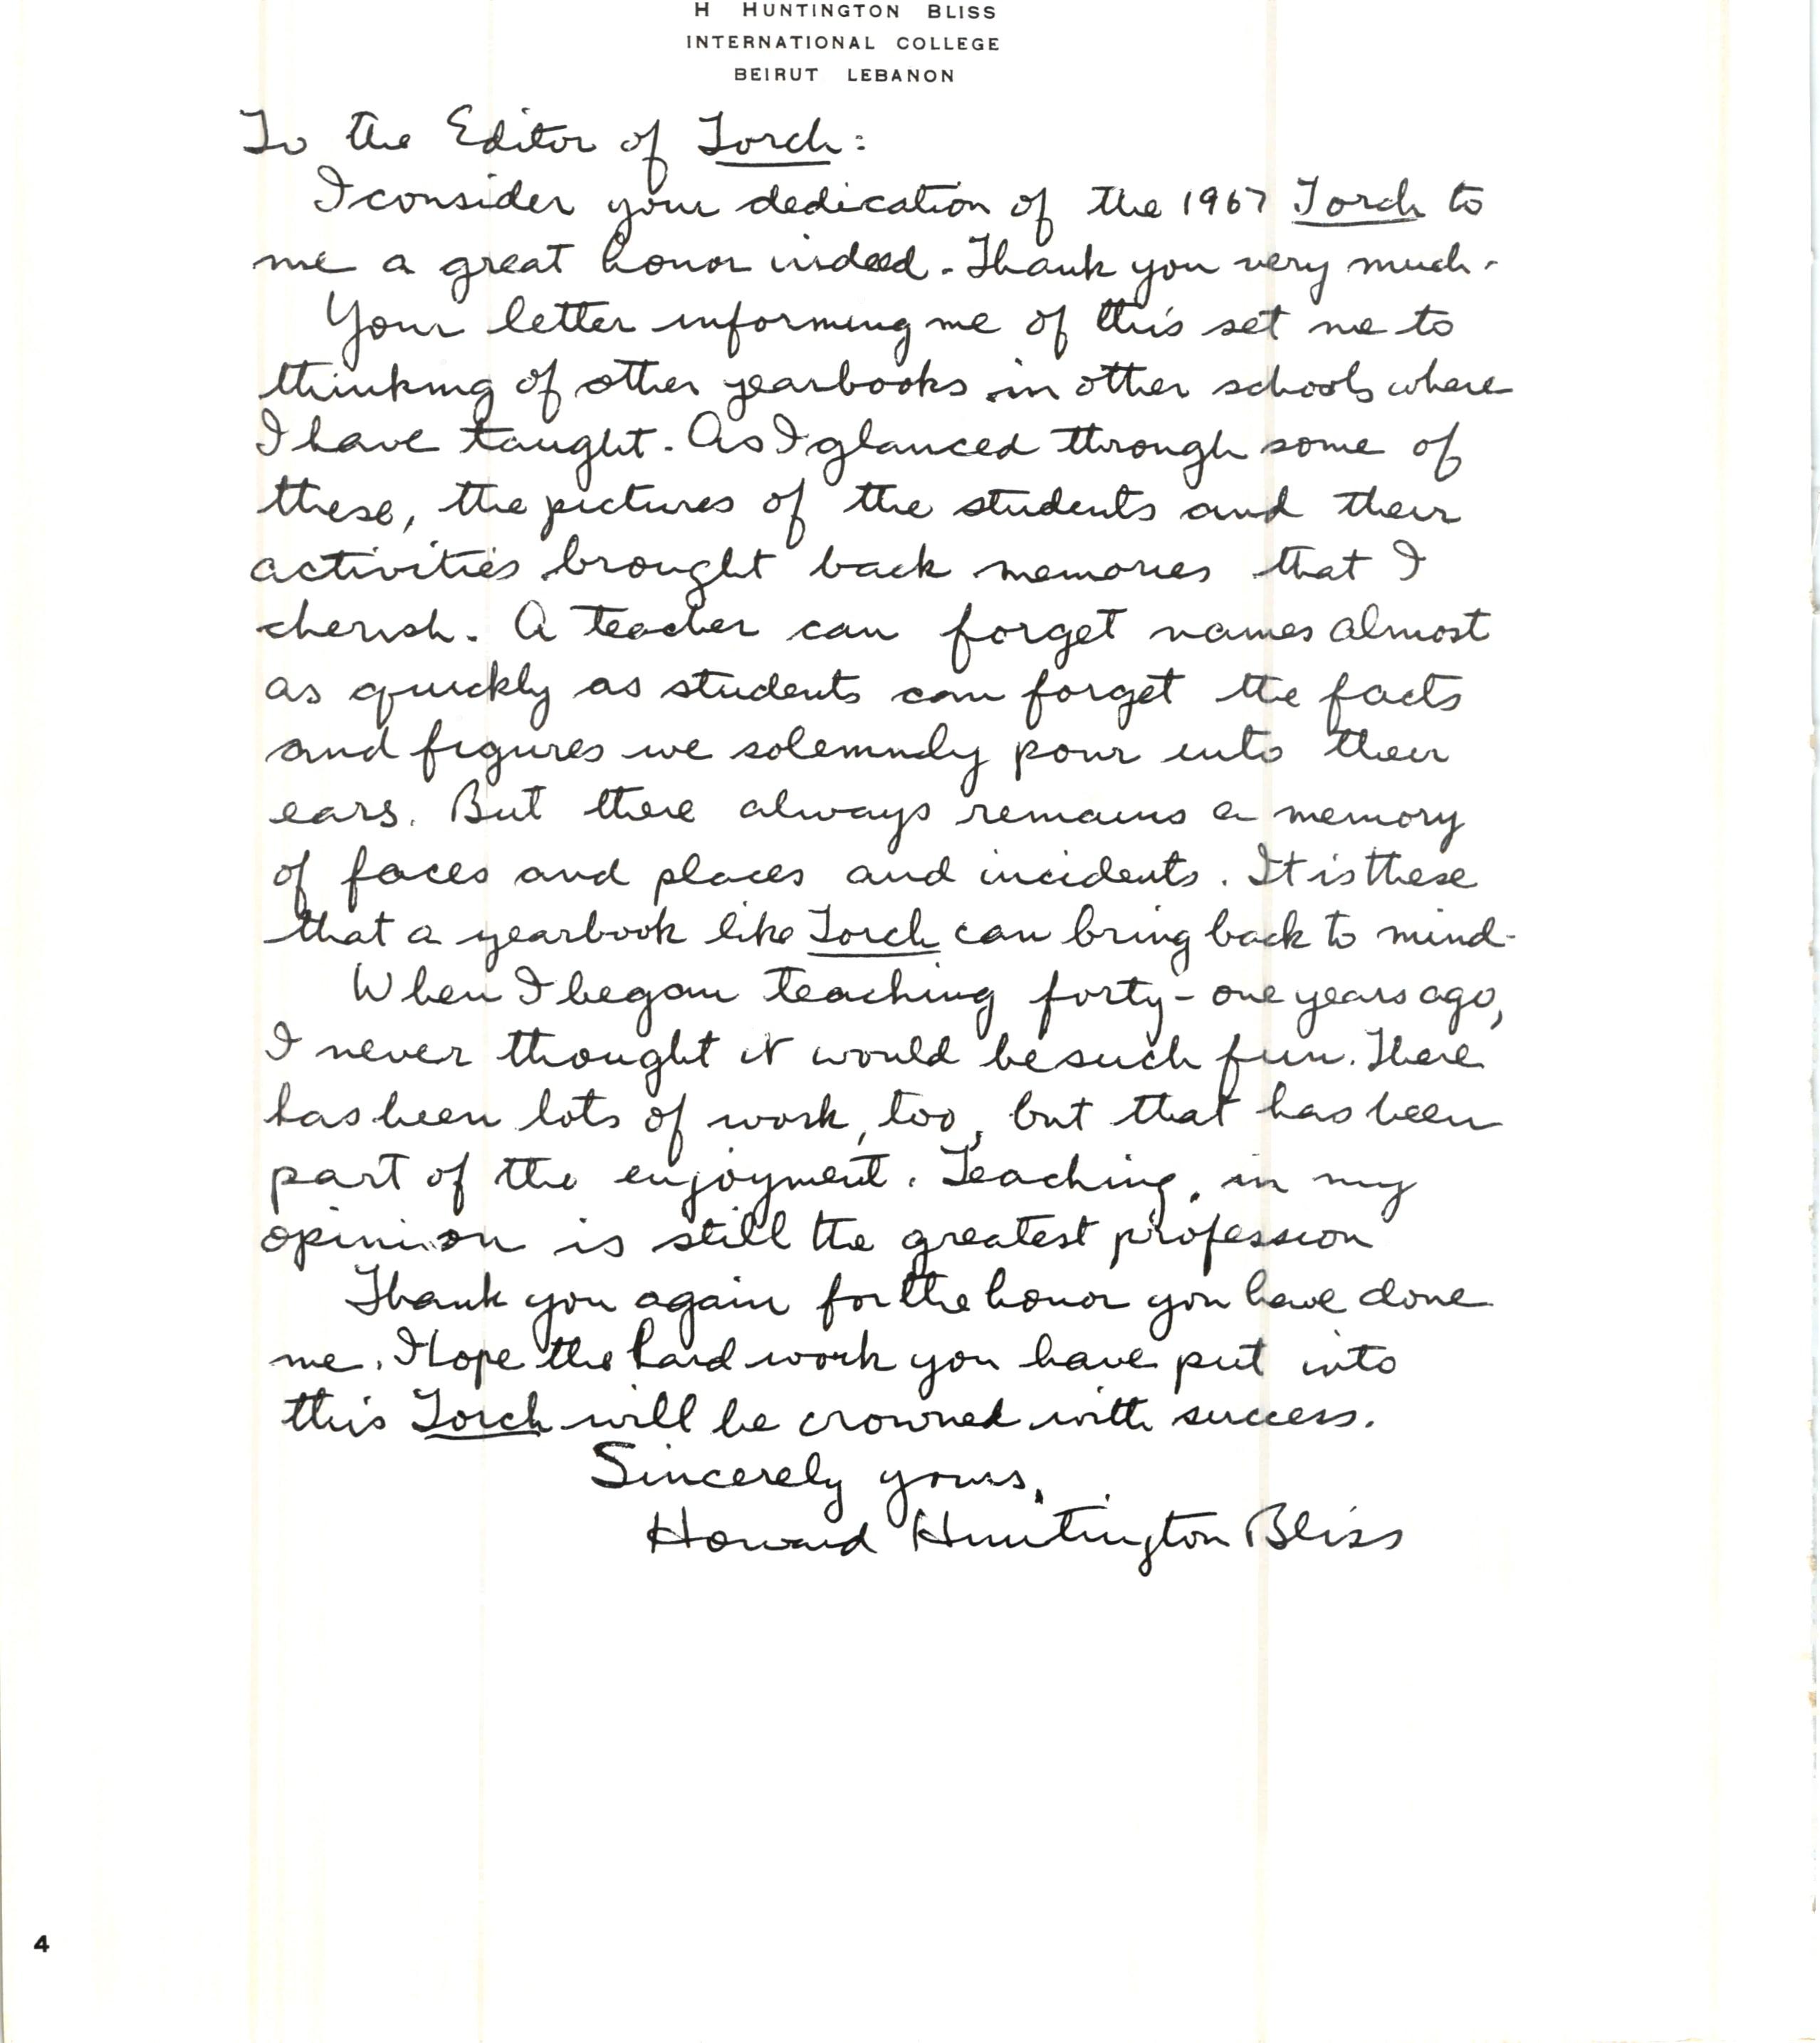 H HUNTINGTON BLISS
INTERNATIONAL COLLEGE
BEIRUT LEBANON
To the Editor of Torch:
I consider your dedication of the 1967 Torch to
me a great honor indeed. Thank you very much.
Your letter informing me of this set me to
thinking of other yearbooks in other schools where
I have taught. As I glanced through some of
these, the pictures of the students and their
activities brought back memories that I
cherish. A teacher can forget names almost
as quickly as students can forget the facts
and figures we solemnly pour into their
ears. But there always remains a memory
of faces and places and incidents. It is these
that a yearbook like Torch can bring back to mind.
When I began teaching forty-one years ago,
I never thought it would be such fun. There
has been lots of work, too, but that has been
part of the enjoyment. Teaching, in my
opinion is still the greatest profession
Thank you again for the honor you have done
me. I hope the hard work you have put into
this Torch will be crowned with success.
Sincerely yours,
Howard Huntington Bliss
4